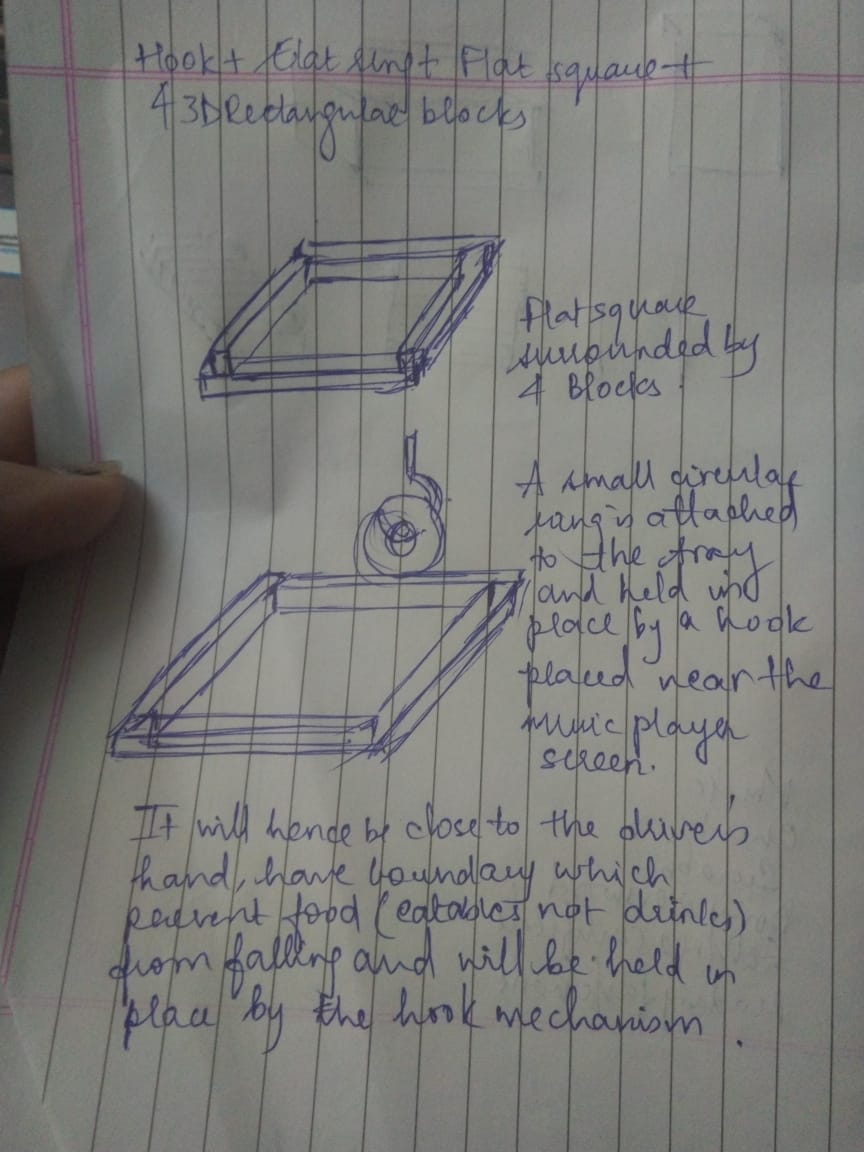 Hook + Flat ring + Flat square +
4 3D Rectangular blocks
Flat square
surrounded by
4 Blocks.
A small circular
ring is attached
to the tray
and held in
place by a hook
placed near the
music player
screen.
It will hence be close to the driver's
hand, have boundary which
prevent food (eatables not drinks)
from falling and will be held in
place by the hook mechanism.